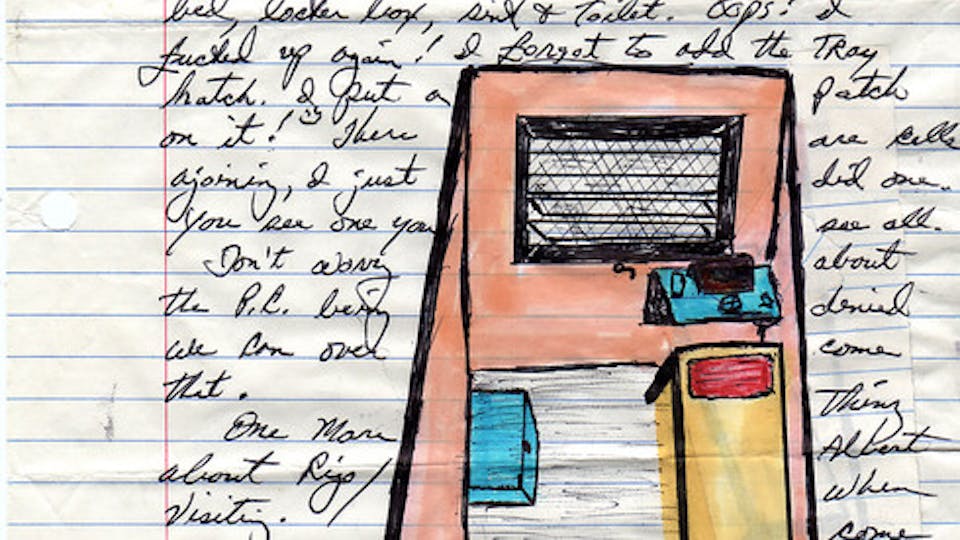 bed, locker box, sink & toilet. Oops! I
fucked up again! I forgot to add the Tray
hatch. I put a Patch
on it! There are cells
ajoining, I just did one.
You see one you see all.
Don't worry about
the P.C. being denied
we can over come
that. Thing
One More Albert
about Rigo/ When
Visiting. come